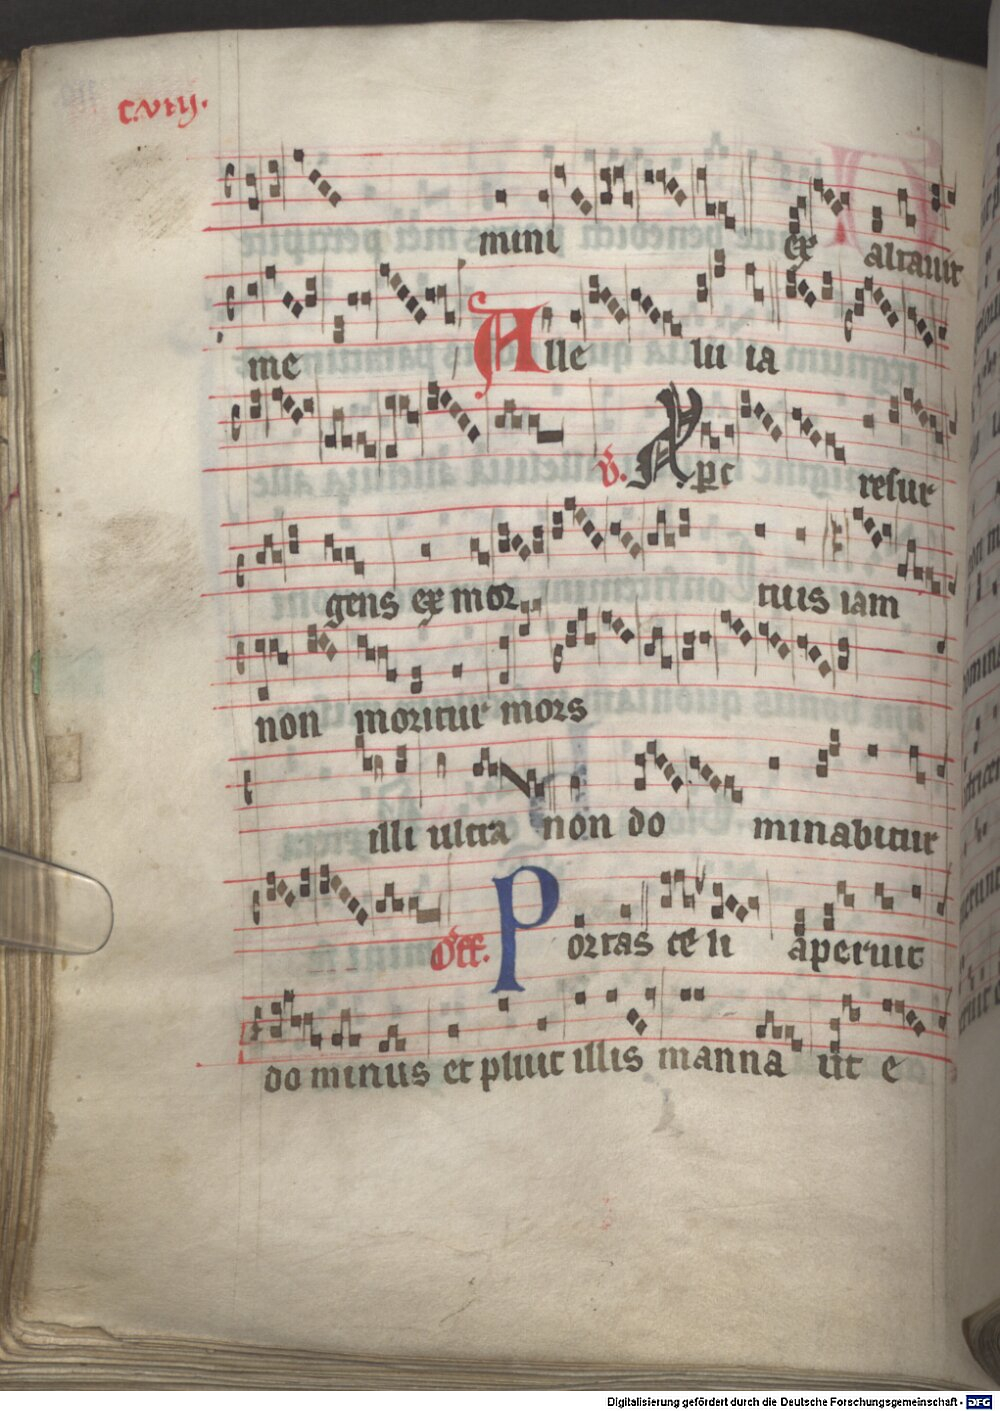 c.viij.
mini ex altauit
me Alle lu ia
v. Xpc resur
gens ex mor tuus iam
non moritur mors
illi ultra non do minabitur
Off. Portas ce li aperuit
do minus et pluit illis manna ut e
Digitalisierung gefördert durch die Deutsche Forschungsgemeinschaft - DFG